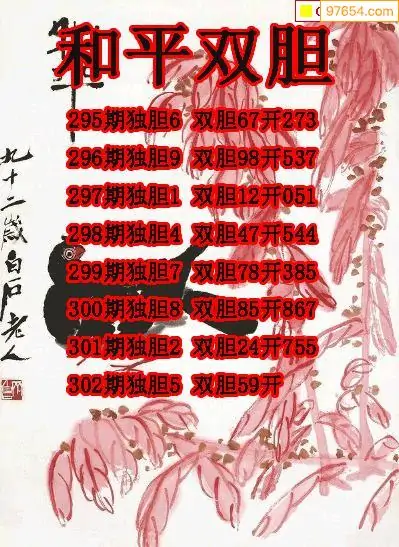 97654.com
和平双胆
295期独胆6 双胆67开273
296期独胆9 双胆98开537
297期独胆1 双胆12开051
298期独胆4 双胆47开544
299期独胆7 双胆78开385
300期独胆8 双胆85开867
301期独胆2 双胆24开755
302期独胆5 双胆59开
九十二岁白石老人